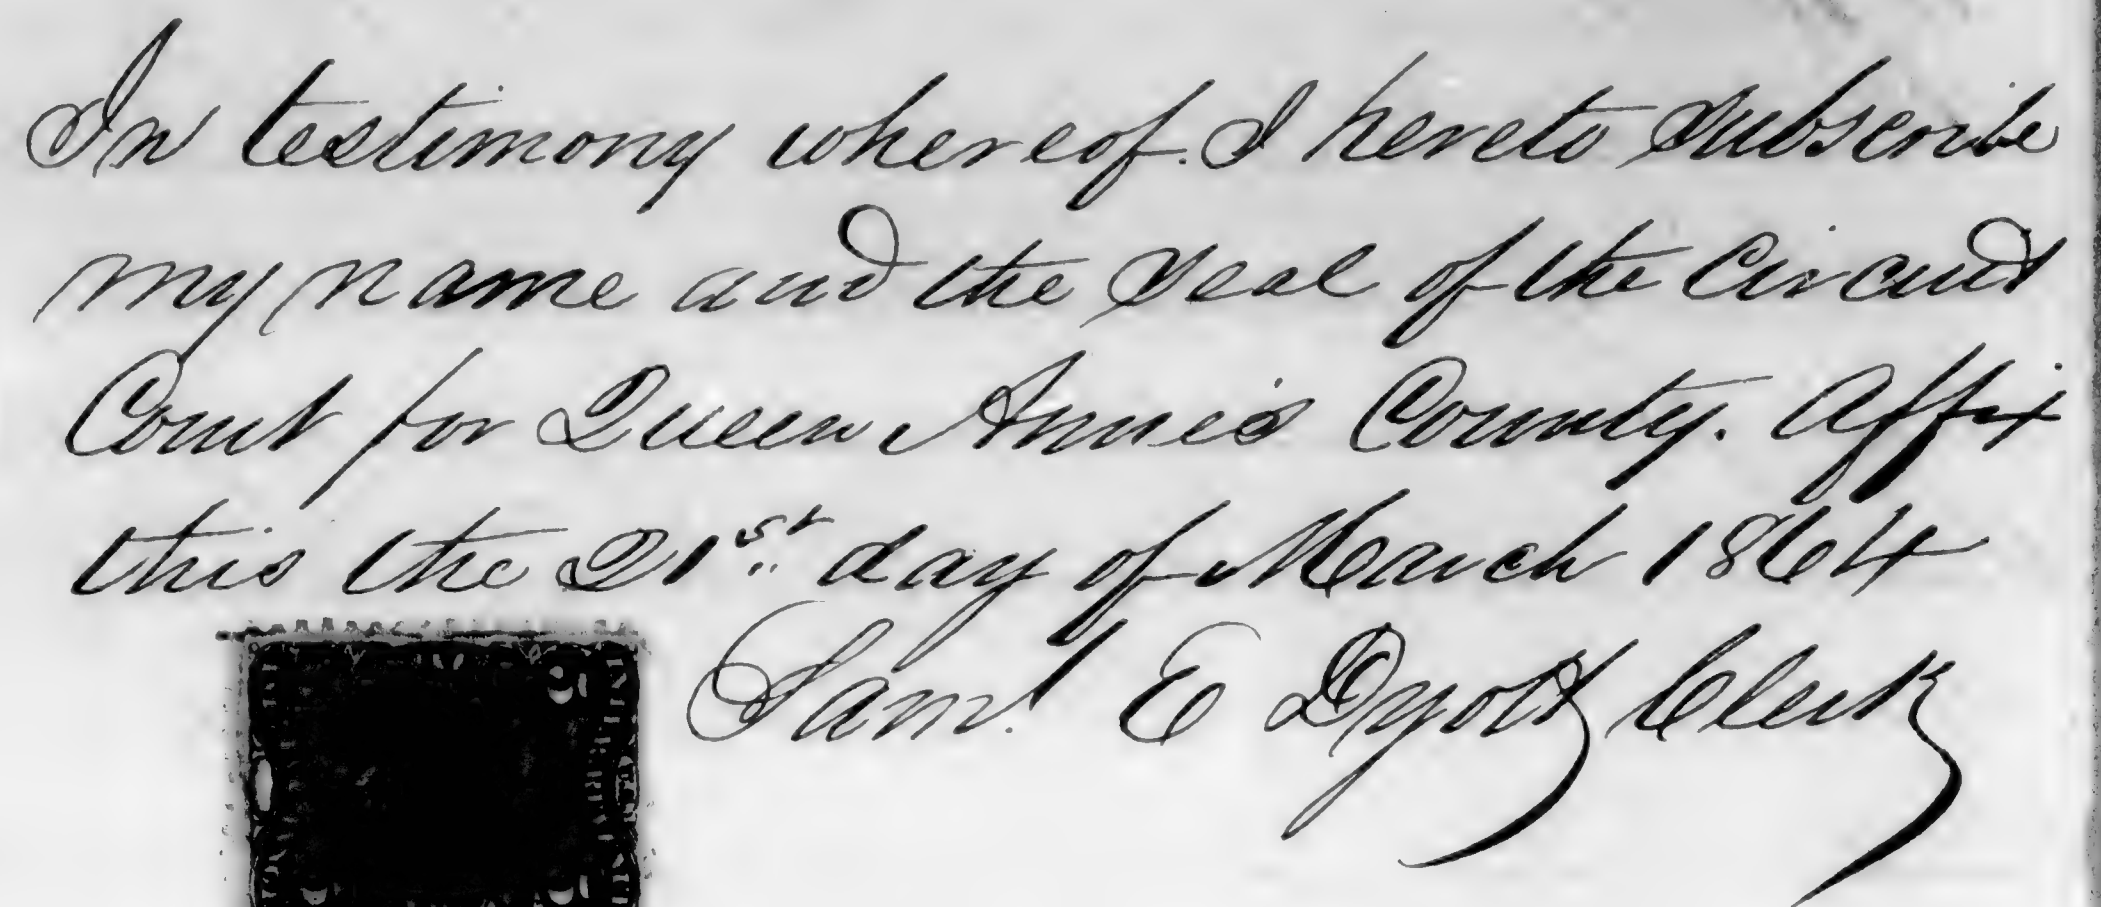 In testimony whereof. I hereto subscribe
my name and the seal of the Circuit
Court for Queen Anne's County. Affix
this the 21st day of March 1864
Saml. E Dyott Clerk